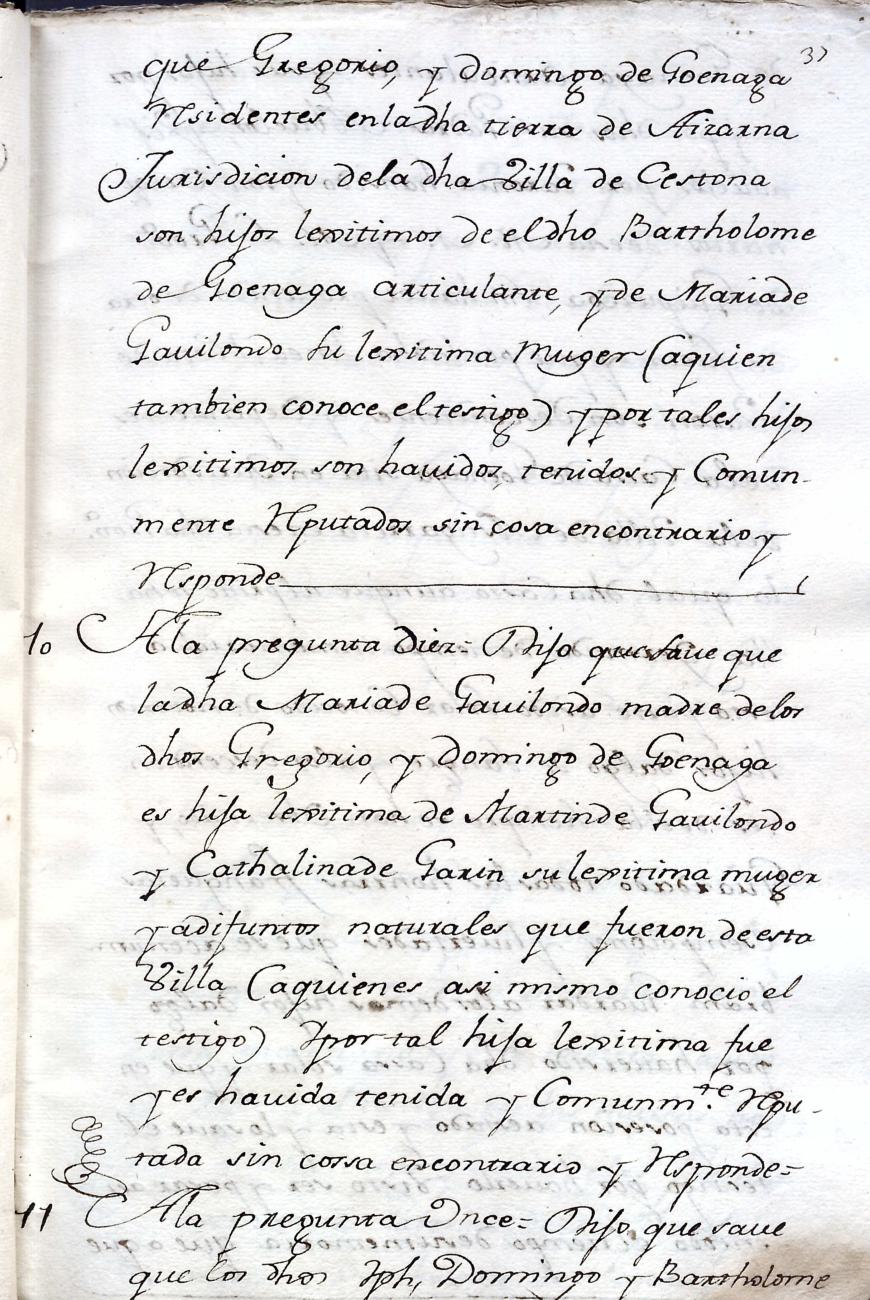 37
que Gregorio, y Domingo de Goenaga
Residentes enladha tierra de Aizarna
Jurisdicion deladha Villa de Cestona
son hijos lexitimos de eldho Bartholome
de Goenaga articulante, y de Maria de
Gauilondo su lexitima Muger (aquien
tambien conoce el testigo) y por tales hijos
lexitimos son hauidos, tenidos y Comun-
mente Reputados sin cosa encontrario y
Responde
10 A la pregunta Diez= Dijo que saue que
ladha Maria de Gauilondo madre delos
dhos Gregorio, y Domingo de Goenaga
es hija lexitima de Martin de Gauilondo
y Cathalina de Garin su lexitima muger
ya difuntos naturales que fueron de esta
Villa (aquienes asi mismo conocio el
testigo) Ypor tal hija lexitima fue
yes hauida tenida y Comunm.te Repu-
tada sin cossa encontrario y Responde=
11 A la pregunta Once= Dijo que saue
que los dhos Jph, Domingo y Bartholome